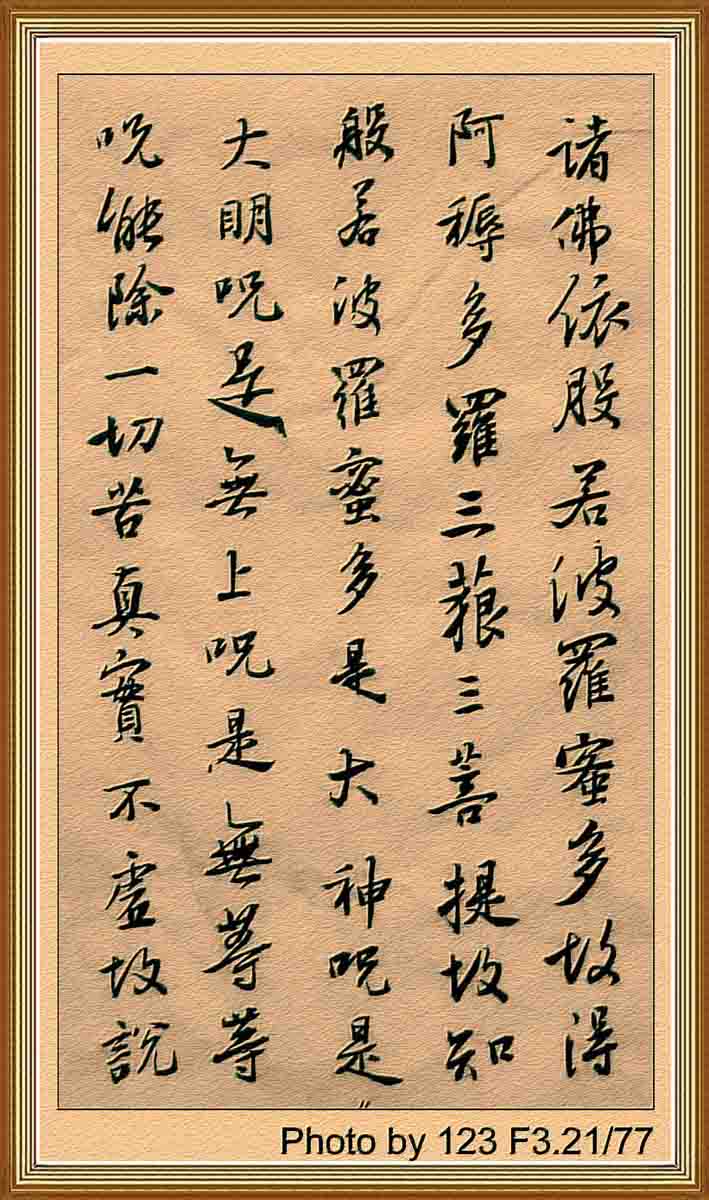 諸佛依般若波羅蜜多故得
阿耨多羅三藐三菩提故知
般若波羅蜜多是大神呪是
大明呪是無上呪是無等等
呪能除一切苦真實不虛故說
〃
Photo by 123 F3.21/77